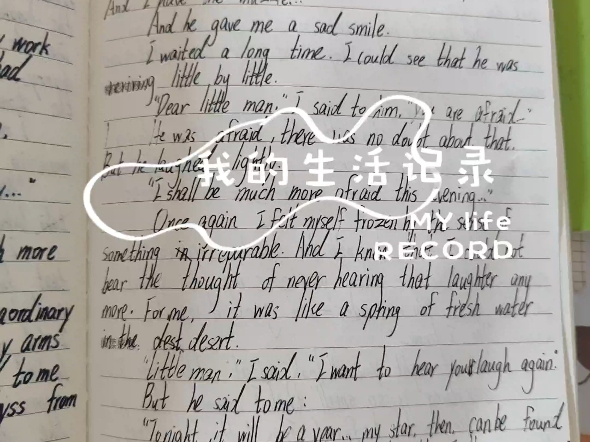 work
had
...."
more
aordinary
y arms
to me
yss from
And I have the muzzle...
And he gave me a sad smile.
I waited a long time. I could see that he was
little by little.
"Dear little man," I said to him, "you are afraid..."
He was afraid, there was no doubt about that.
But he laughed lightly.
"I shall be much more afraid this evening..."
Once again I felt myself frozen by the sense of
something irreparable. And I knew that I could not
bear the thought of never hearing that laughter any
more. For me, it was like a spring of fresh water
in the desert.
"Little man," I said, "I want to hear you laugh again."
But he said to me:
"Tonight, it will be a year... my star, then, can be found
我的生活记录
MY life
RECORD